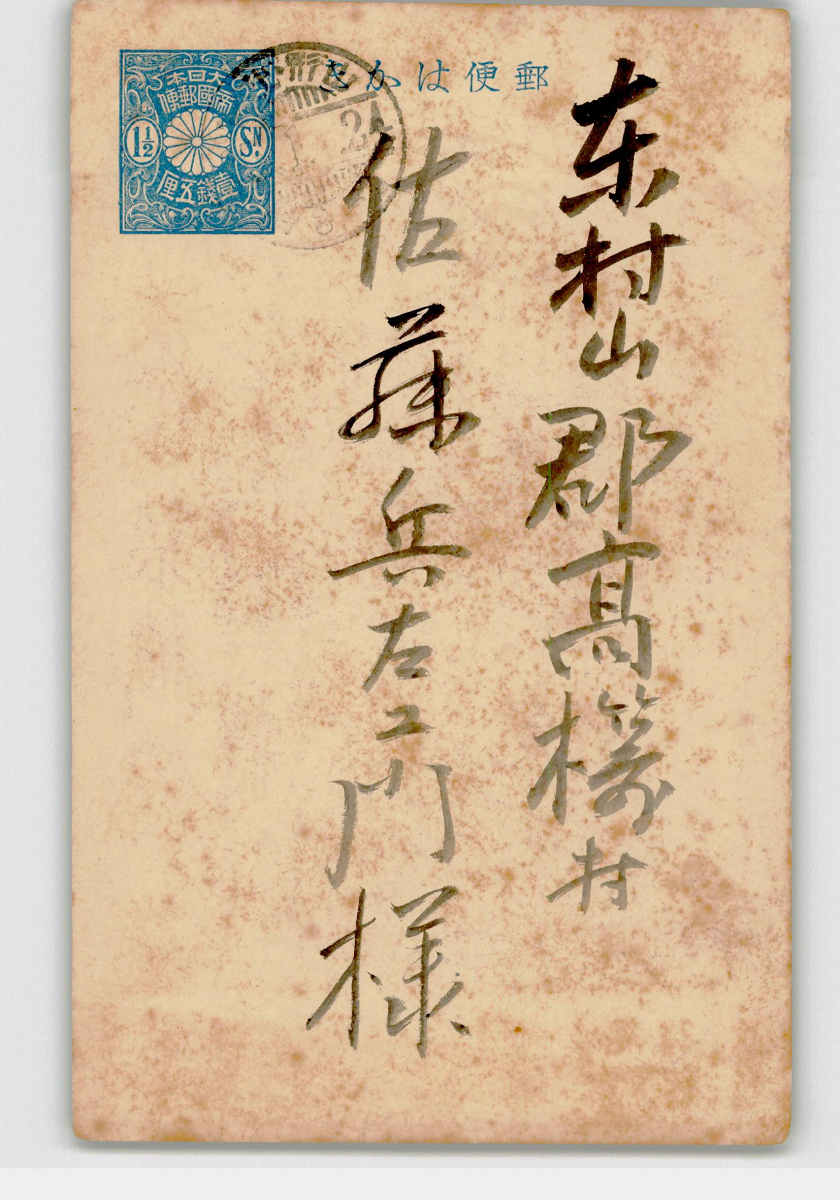 郵便はかき
大日本
帝國郵便
1½
SN.
壹錢五厘
山形
24
東村山郡高擶村
佐藤兵左エ門様